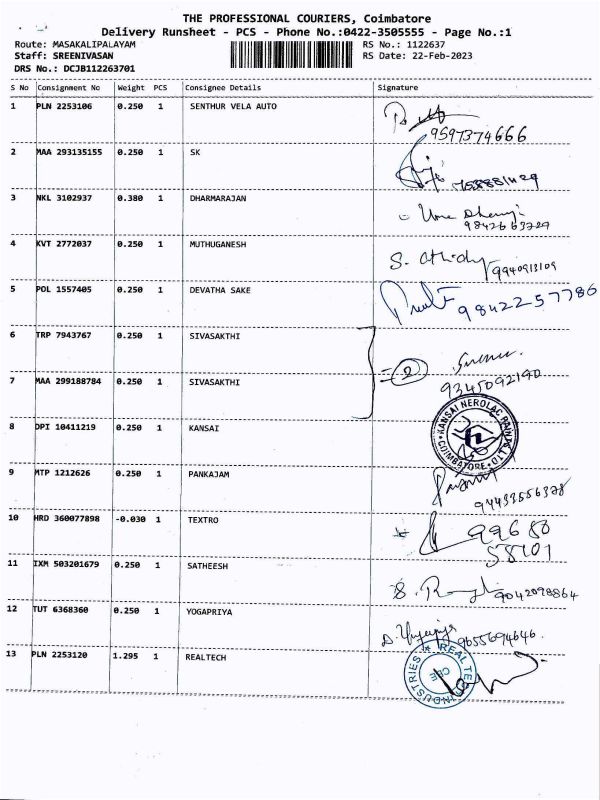 THE PROFESSIONAL COURIERS, Coimbatore
Delivery Runsheet - PCS - Phone No.:0422-3505555 - Page No.:1
Route: MASAKALIPALAYAM RS No.: 1122637
Staff: SREENIVASAN RS Date: 22-Feb-2023
DRS No.: DCJB112263701
S No Consignment No Weight PCS Consignee Details Signature
1 PLN 2253106 0.250 1 SENTHUR VELA AUTO
9597374666
2 MAA 293135155 0.250 1 SK
3 NKL 3102937 0.380 1 DHARMARAJAN
4 KVT 2772037 0.250 1 MUTHUGANESH
S.
9940913109
5 POL 1557405 0.250 1 DEVATHA SAKE
98422 57786
6 TRP 7943767 0.250 1 SIVASAKTHI
2
7 MAA 299188784 0.250 1 SIVASAKTHI
9345092190
8 DPI 10411219 0.250 1 KANSAI
KANSAI NEROLAC PAINTS LTD
COIMBATORE
9 MTP 1212626 0.250 1 PANKAJAM
10 HRD 360077898 -0.030 1 TEXTRO
99688
58101
11 IXM 503201679 0.250 1 SATHEESH
9042098864
12 TUT 6368360 0.250 1 YOGAPRIYA
9655694646.
13 PLN 2253120 1.295 1 REALTECH
REAL TEC
INDUSTRIES
CBE